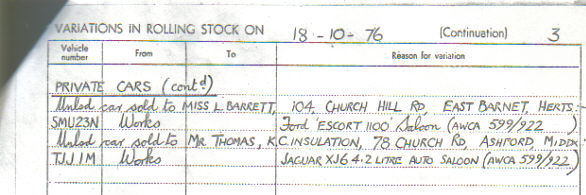 VARIATIONS IN ROLLING STOCK ON 18-10-76 (Continuation) 3
Vehicle number From To Reason for variation
PRIVATE CARS (contd)
Unlsd car sold to MISS L. BARRETT, 104 CHURCH HILL RD, EAST BARNET, HERTS:-
SMU23N Works Ford 'ESCORT 1100' Saloon (AWCA 599/922)
Unlsd car sold to MR THOMAS, K.C. INSULATION, 78 CHURCH RD, ASHFORD, MIDDX
TJJ 1M Works JAGUAR XJ6 4.2 LITRE AUTO SALOON (AWCA 599/922)